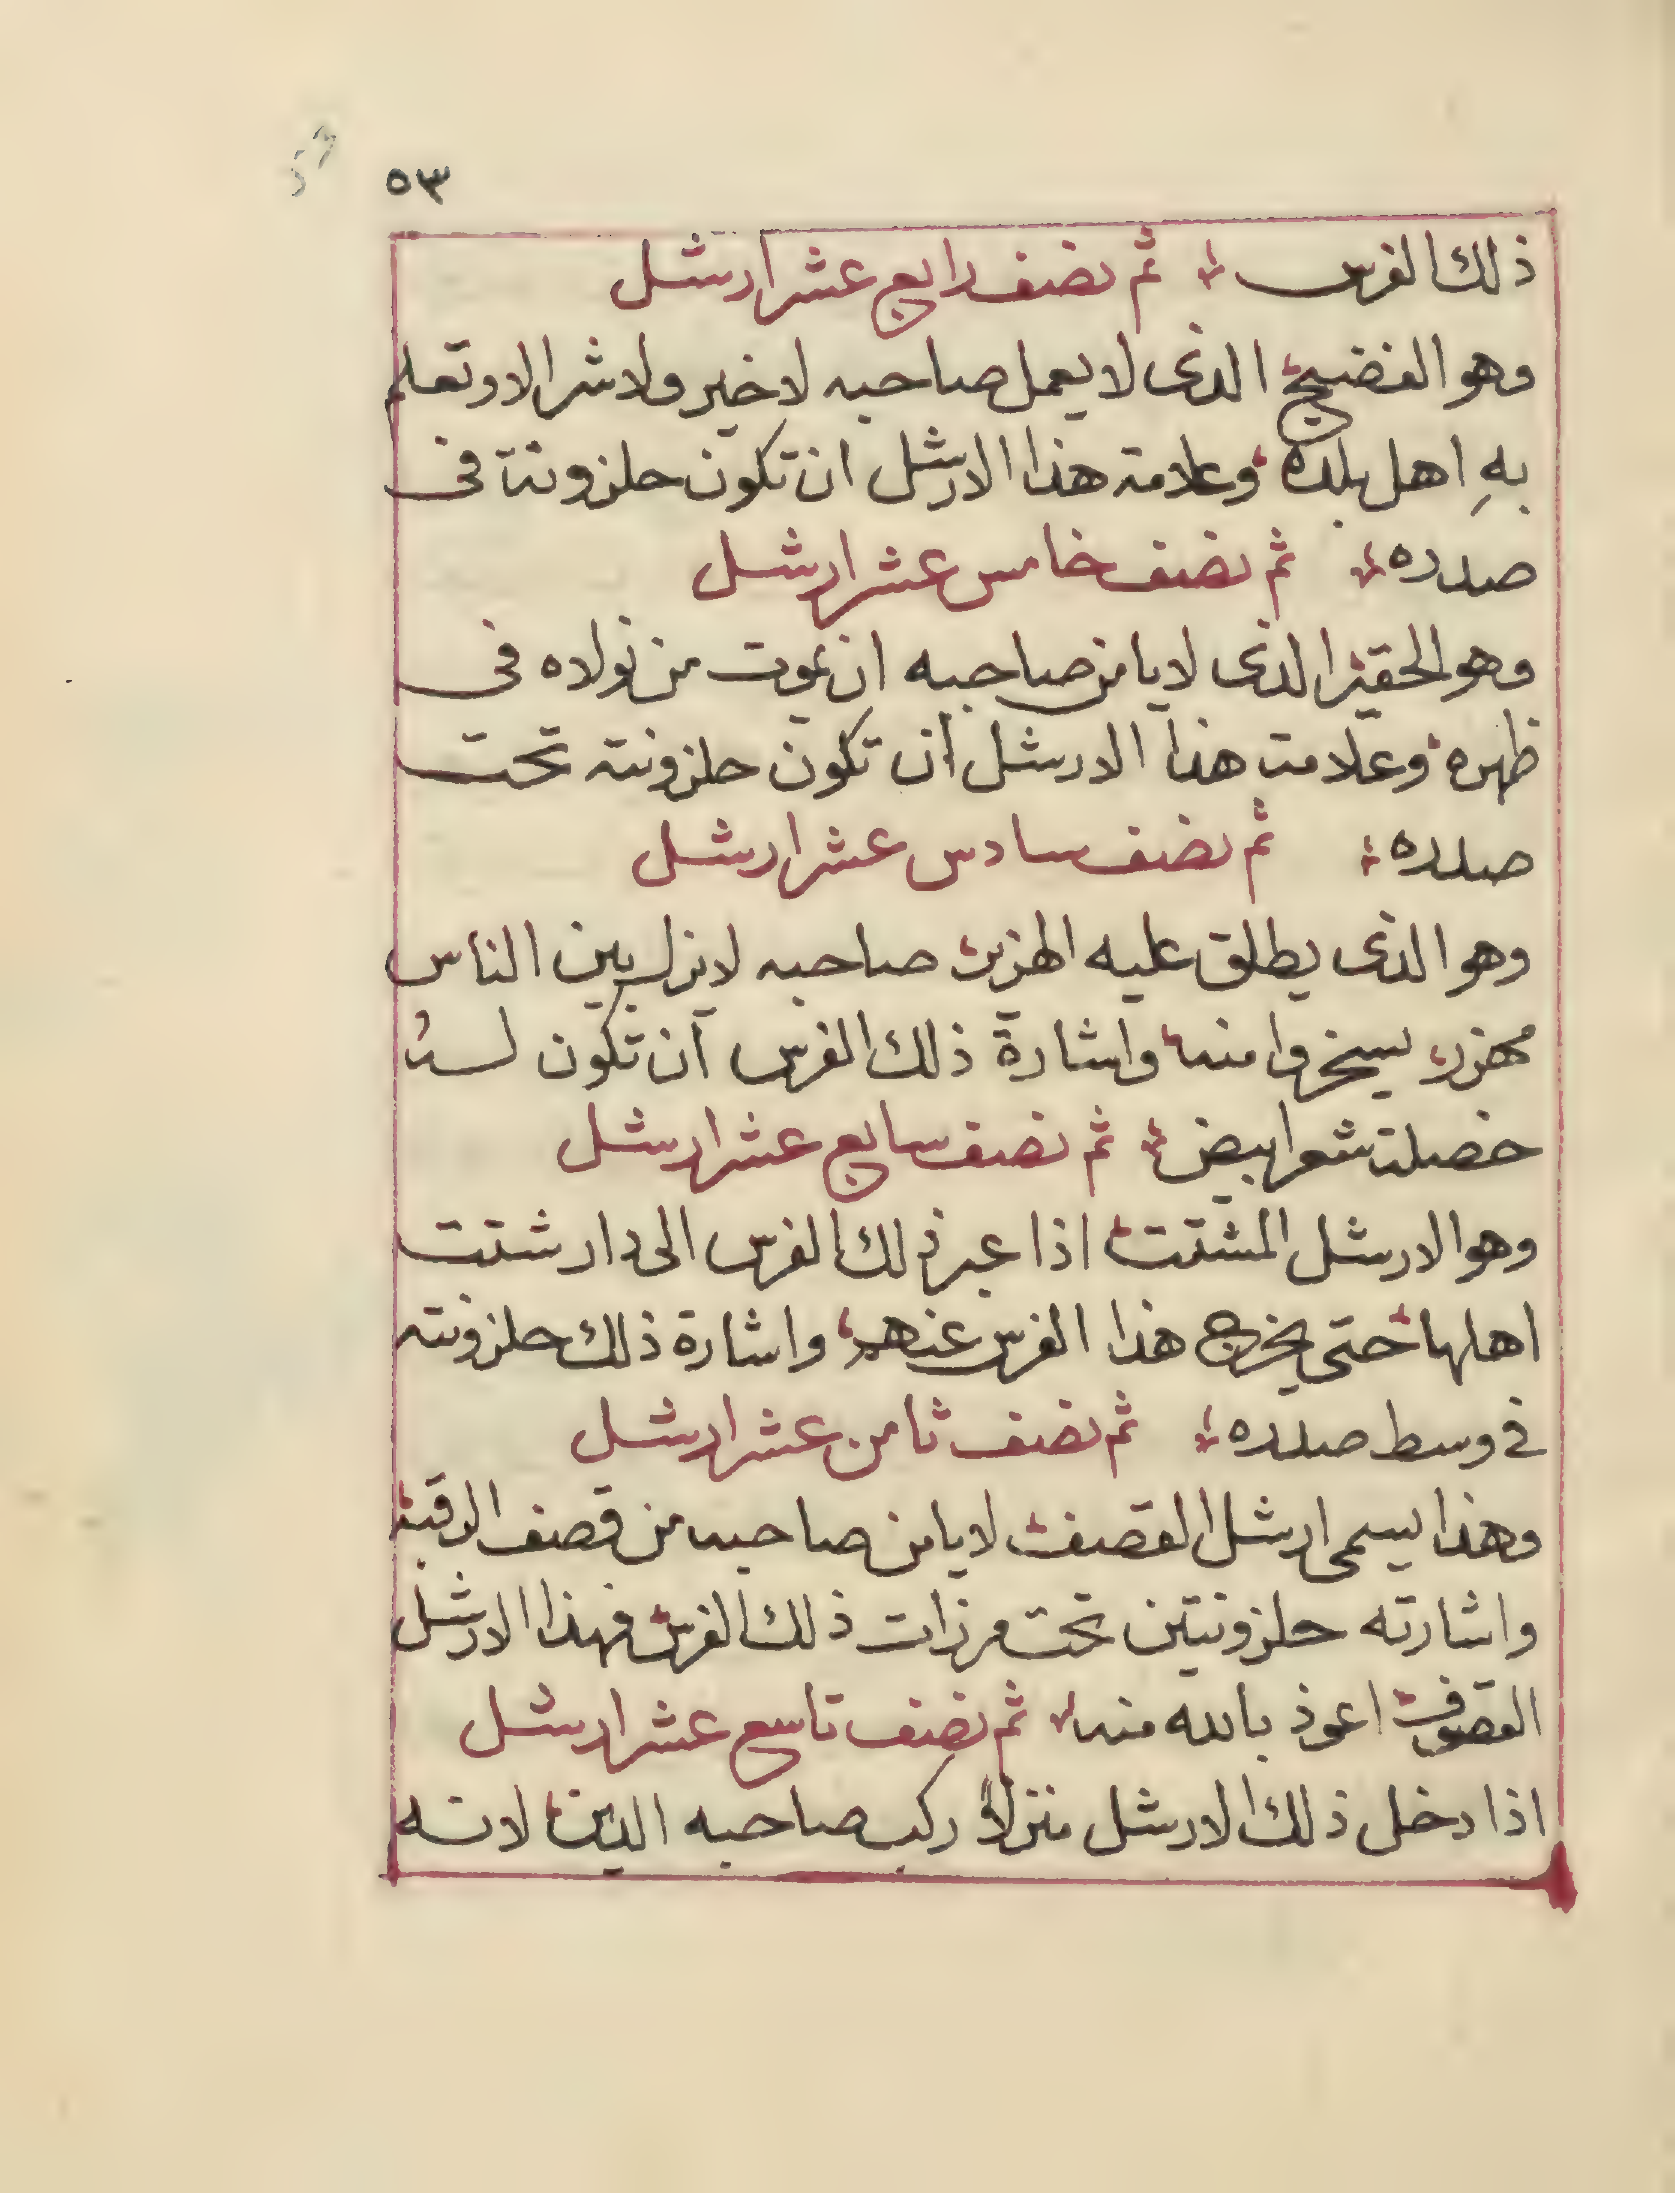 ٥٣
ذلك الفرس ثم نصف رابع عشر ارشل
وهو الفضيح الذى لا يعمل صاحبه لا خير ولا شر الا وتعلم
بهِ اهل بلده وعلامة هذا الارشل ان تكون حلزونته فى
صدره ثم نصف خامس عشر ارشل
وهو الحقير الذى لا يامن صاحبه ان يموت من تولاه فى
ظهره وعلامت هذا الارشل ان تكون حلزونته تحت
صدره ثم نصف سادس عشر ارشل
وهو الذى يطلق عليه الهزيت صاحبه لا يزل بين الناس
مهزر يسخروا منه واشارة ذلك الفرس ان تكون لسته
خصلة شعر ابيض ثم نصف سابع عشر ارشل
وهو الارشل المشتت اذا عبر ذلك الفرس الى دار شتت
اهلها حتى يخرج هذا الفرس عنهم واشارة ذلك حلزونته
فى وسط صدره ثم نصف ثامن عشر ارشل
وهذا يسمى ارشل القصيف لا يامن صاحبه من قصف الرقبة
واشارته حلزونتين تحت مرزات ذلك الفرس فهذا الارشل
القصوف اعوذ بالله منه ثم نصف تاسع عشر ارشل
اذا دخل ذلك الارشل منزلا ركب صاحبه الدين لانه